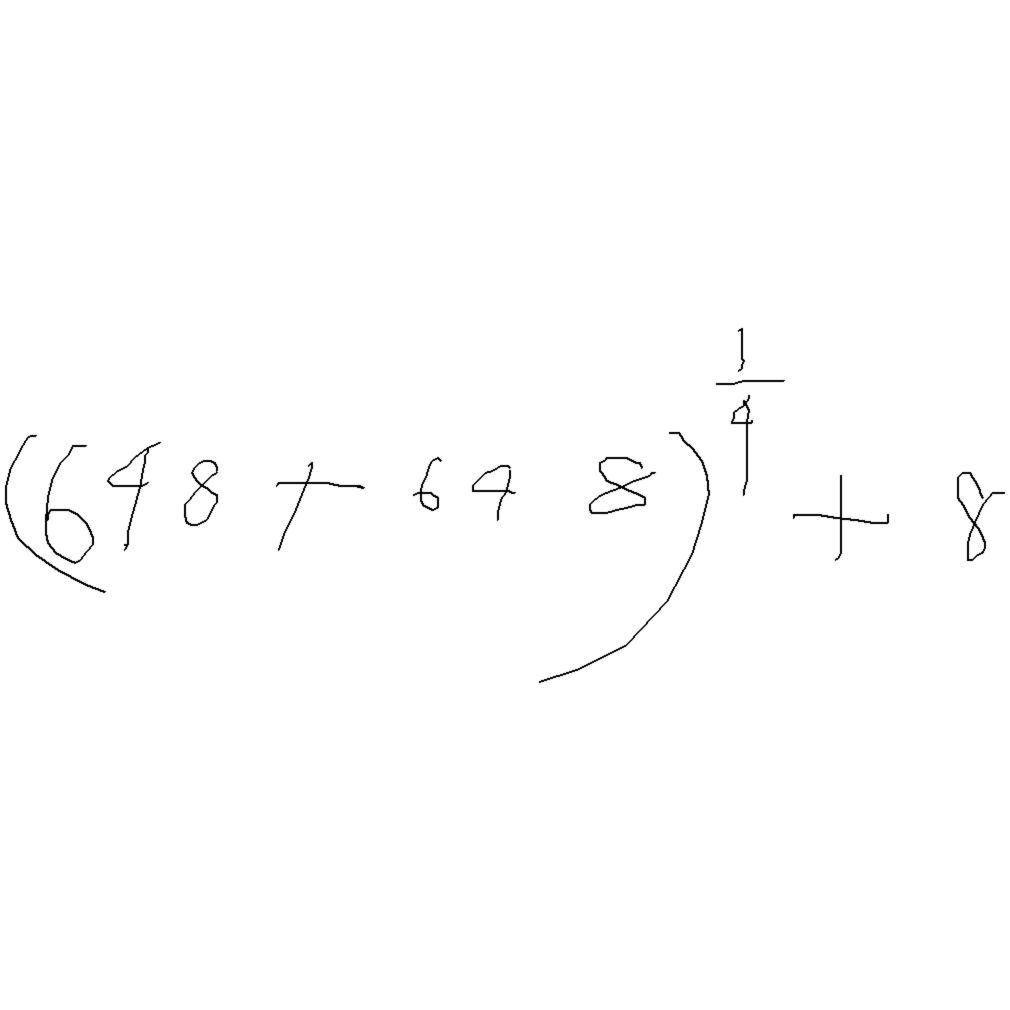 (648 + 648)^{\frac{1}{4}} + 8